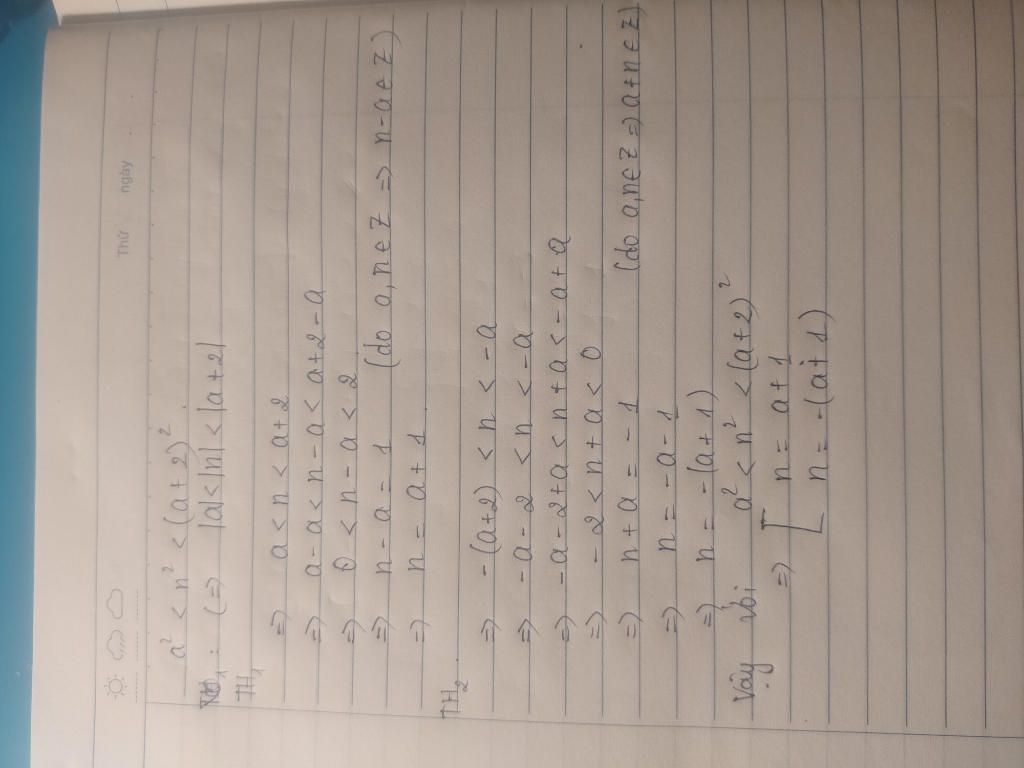 Thứ ngày
a² < n² < (a+2)²
(=) |a| < |n| < |a+2|
TH₁
=) a < n < a+2
=) a-a < n-a < a+2-a
=) 0 < n-a < 2
=) n-a = 1 (do a,n∈Z => n-a∈Z)
=) n = a+1
TH₂
=) -(a+2) < n < -a
=) -a-2 < n < -a
=) -a-2+a < n+a < -a+a
=) -2 < n+a < 0
=) n+a = -1 (do a,n∈Z =) a+n∈Z)
=) n = -a-1
=) n = -(a+1)
Vậy Với a² < n² < (a+2)²
=) [ n = a+1
n = -(a+1)